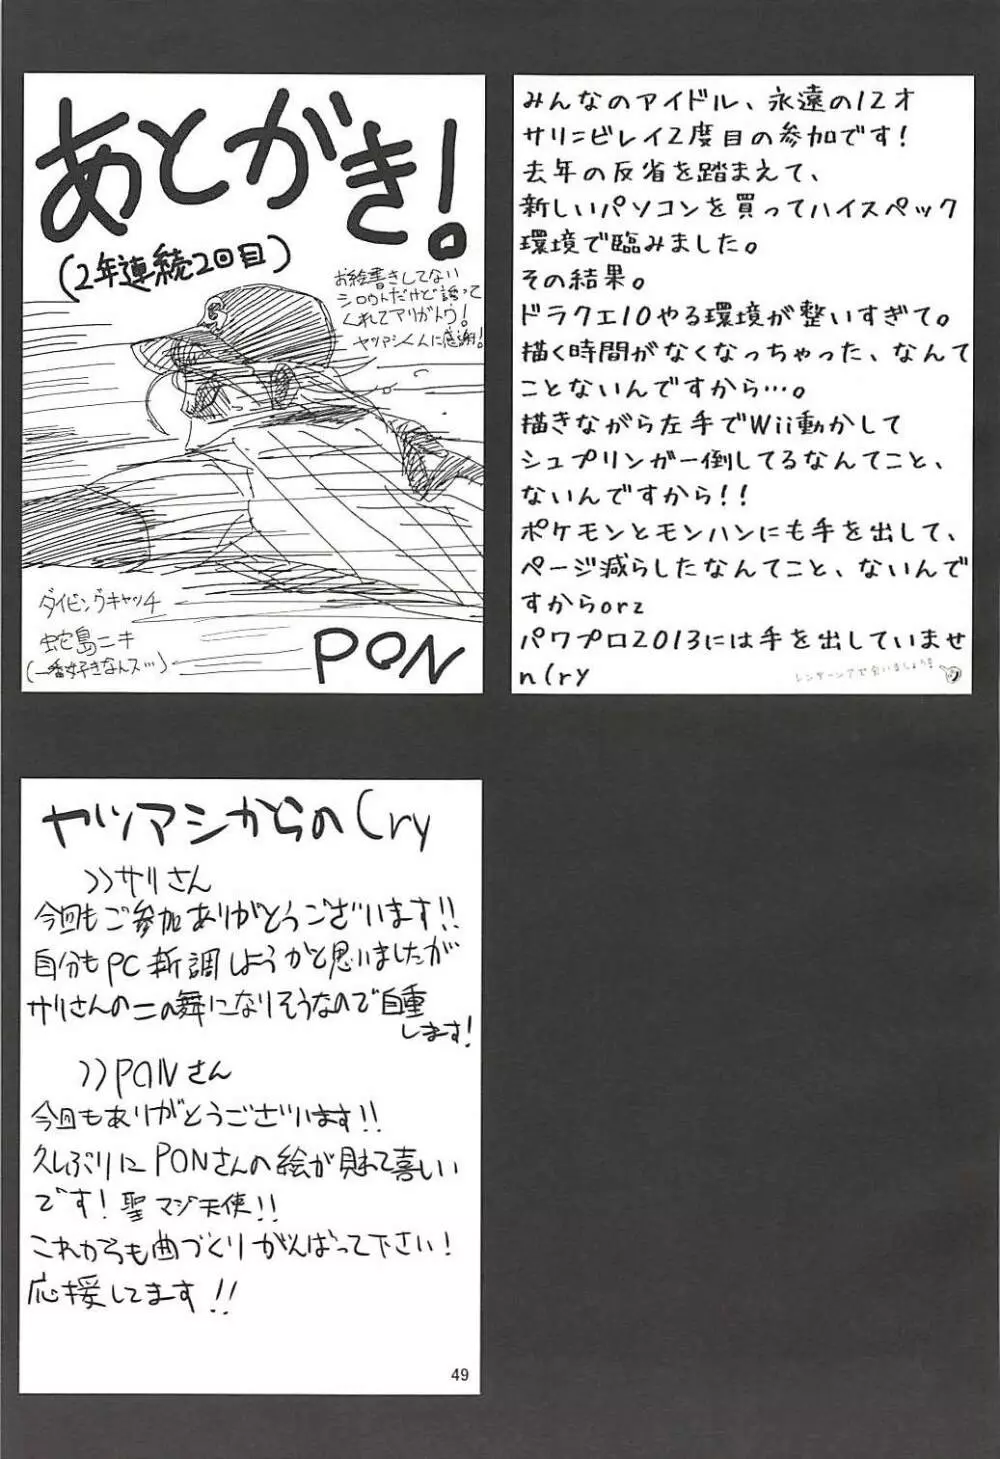 あとがき！
(2年連続2回目)
お絵書きしてない
シロウトだけど誘って
くれてアリガトウ！
ヤツアシくんに感謝！
ダイビングキャッチ
蛇島ニキ
(一番好きなんス…)
PON
みんなのアイドル、永遠の12才
サリ=ビレイ2度目の参加です！
去年の反省を踏まえて、
新しいパソコンを買ってハイスペック
環境で臨みました。
その結果。
ドラクエ10やる環境が整いすぎて。
描く時間がなくなっちゃった、なんて
ことないんですから…。
描きながら左手でWii動かして
シュプリンガー倒してるなんてこと、
ないんですから！！
ポケモンとモンハンにも手を出して、
ページ減らしたなんてこと、ないんで
すからorz
パワプロ2013には手を出していませ
n(ry
レンダーシアで会いましょうぞ
ヤツアシからの(ry
>>サリさん
今回もご参加ありがとうございます！！
自分もPC新調しようかと思いましたが
サリさんの二の舞になりそうなので自重
します！
>>PONさん
今回もありがとうございます！！
久しぶりにPONさんの絵が見れて喜しい
です！聖マジ天使！！
これからも曲づくりがんばって下さい！
応援してます！！
49